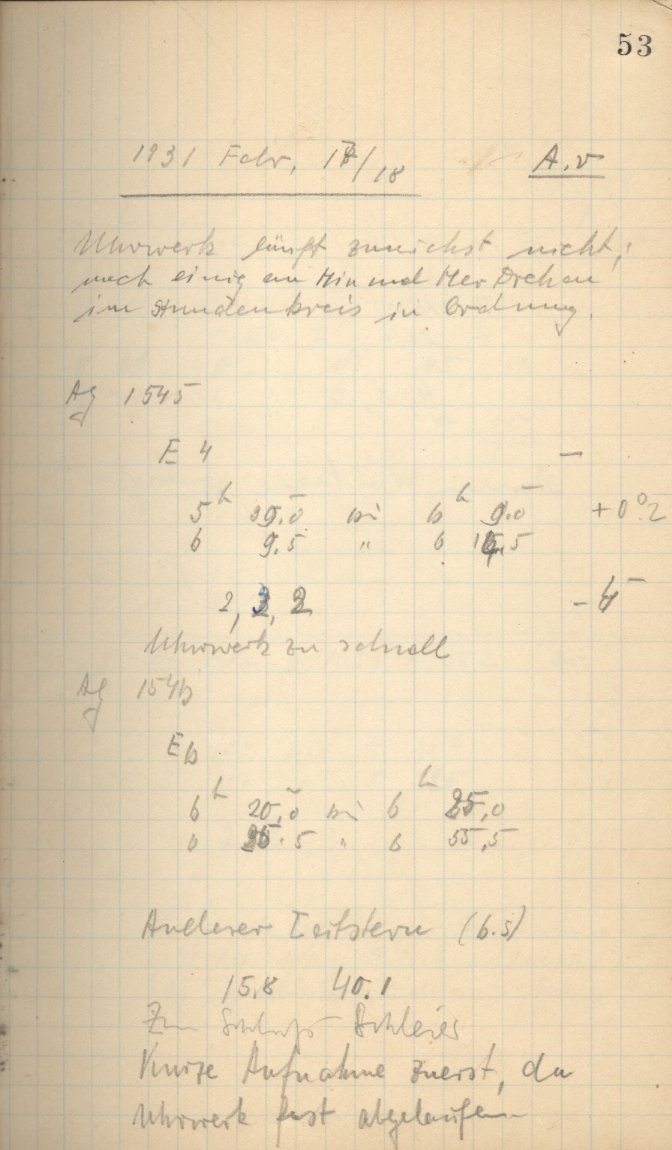 53
1931 Febr. 17/18 A.v
Uhrwerk läuft zunächst nicht;
nach einig en Hin und Her Drehen
im Stundenkreis in Ordnung.
Ag 1545
E 4 —
5h 39,0 bis 6h 9,0 +0°2
6 9,5 " 6 15,5
2, 3, 2 -5
Uhrwerk zu schnell
Ag 1546
E6
6h 20,0 bis 6h 25,0
6 25.5 " 6 55,5
Anderer Leitstern (6.5)
15,8 40.1
Zum Schluß Schleier
Kurze Aufnahme zuerst, da
Uhrwerk fast abgelaufen